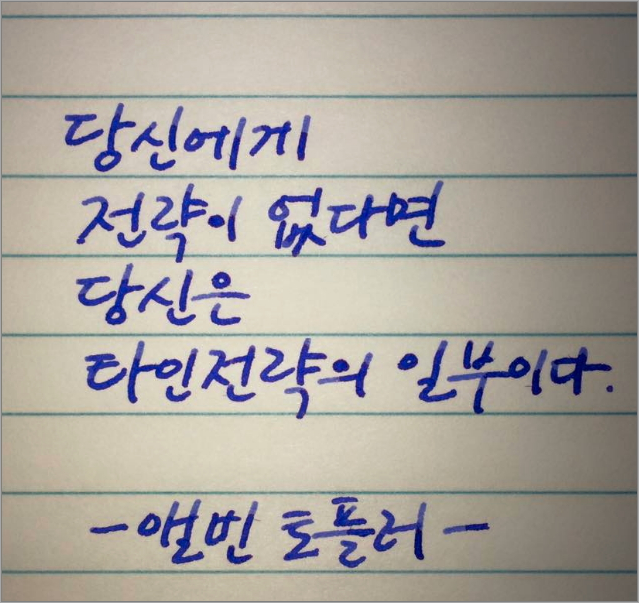 당신에게
전략이 없다면
당신은
타인전략의 일부이다.
-앨빈 토플러-